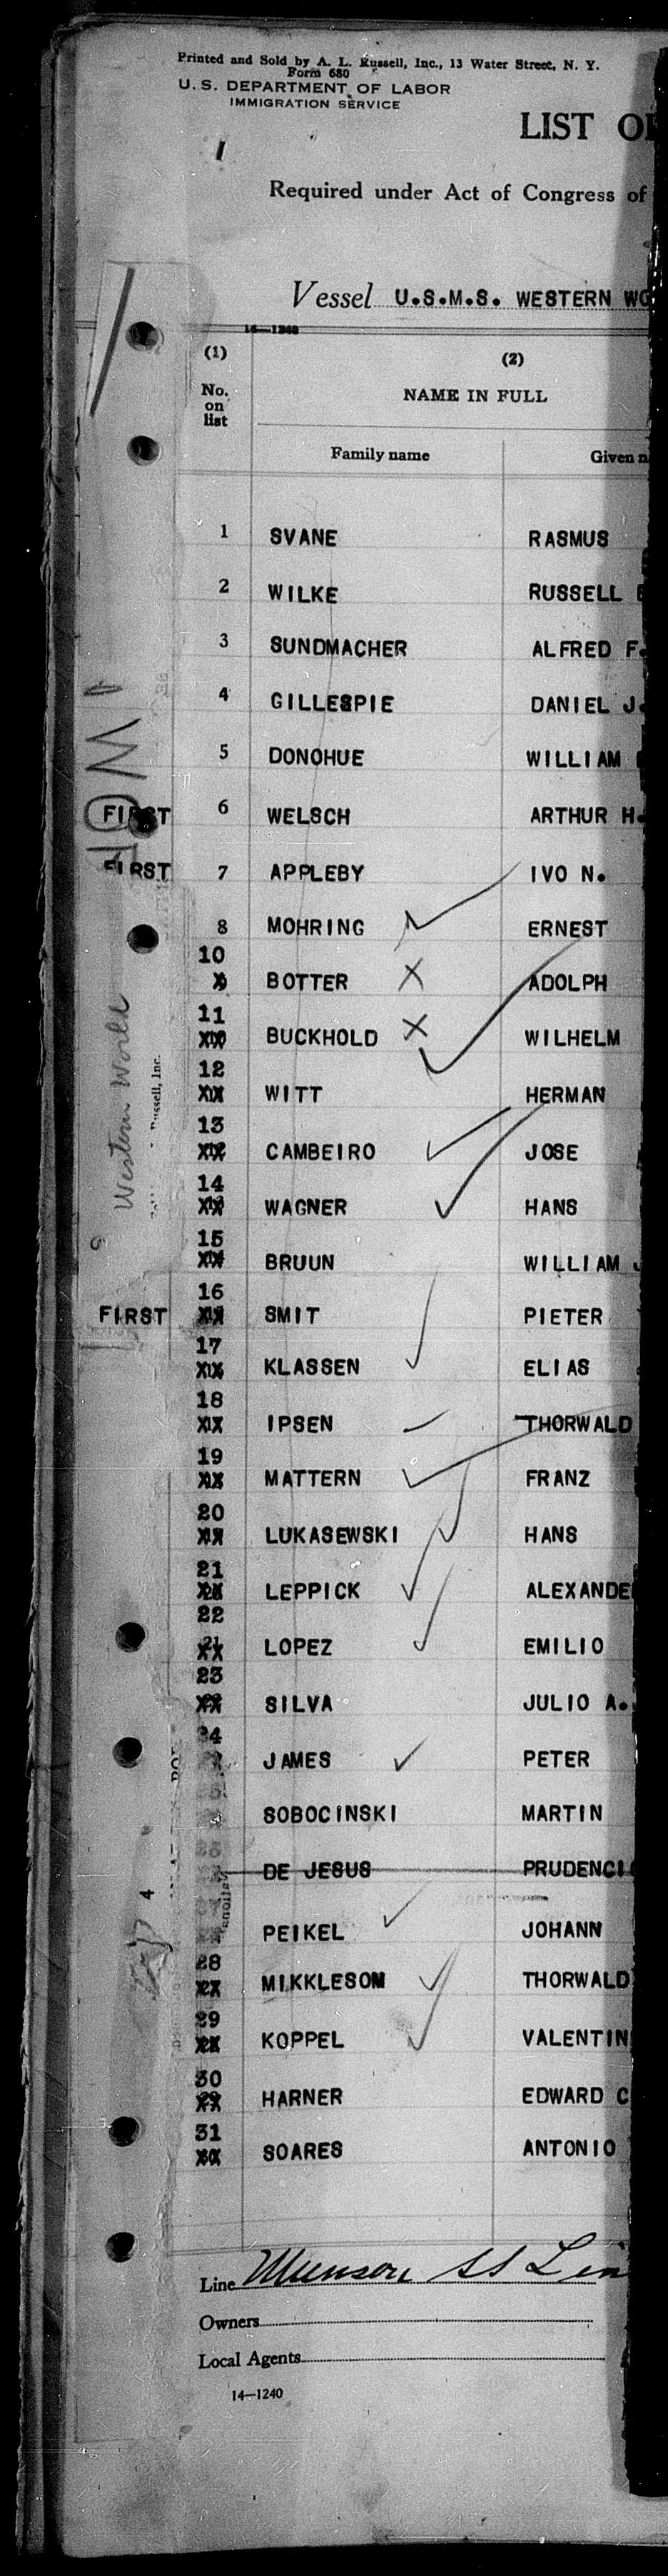 Printed and Sold by A. L. Russell, Inc., 13 Water Street, N. Y.
Form 680
U. S. DEPARTMENT OF LABOR
IMMIGRATION SERVICE
LIST OF
Required under Act of Congress of
Vessel U.S.M.S. WESTERN WO
14—1240
(1) (2)
No. on list NAME IN FULL
Family name Given n
1 SVANE RASMUS
2 WILKE RUSSELL
3 SUNDMACHER ALFRED F.
4 GILLESPIE DANIEL J.
5 DONOHUE WILLIAM
FIRST 6 WELSCH ARTHUR H.
FIRST 7 APPLEBY IVO N.
8 MOHRING ERNEST
10 BOTTER X ADOLPH
11 BUCKHOLD X WILHELM
12 WITT HERMAN
13 CAMBEIRO JOSE
14 WAGNER HANS
15 BRUUN WILLIAM J
FIRST 16 SMIT PIETER
17 KLASSEN ELIAS
18 IPSEN THORWALD
19 MATTERN FRANZ
20 LUKASEWSKI HANS
21 LEPPICK ALEXANDE
22 LOPEZ EMILIO
23 SILVA JULIO A.
24 JAMES PETER
SOBOCINSKI MARTIN
DE JESUS PRUDENCI
PEIKEL JOHANN
28 MIKKLESOM THORWALD
29 KOPPEL VALENTIN
30 HARNER EDWARD C
31 SOARES ANTONIO
Western World
Russell, Inc.
4
Line Munson SS Lin
Owners
Local Agents
14—1240